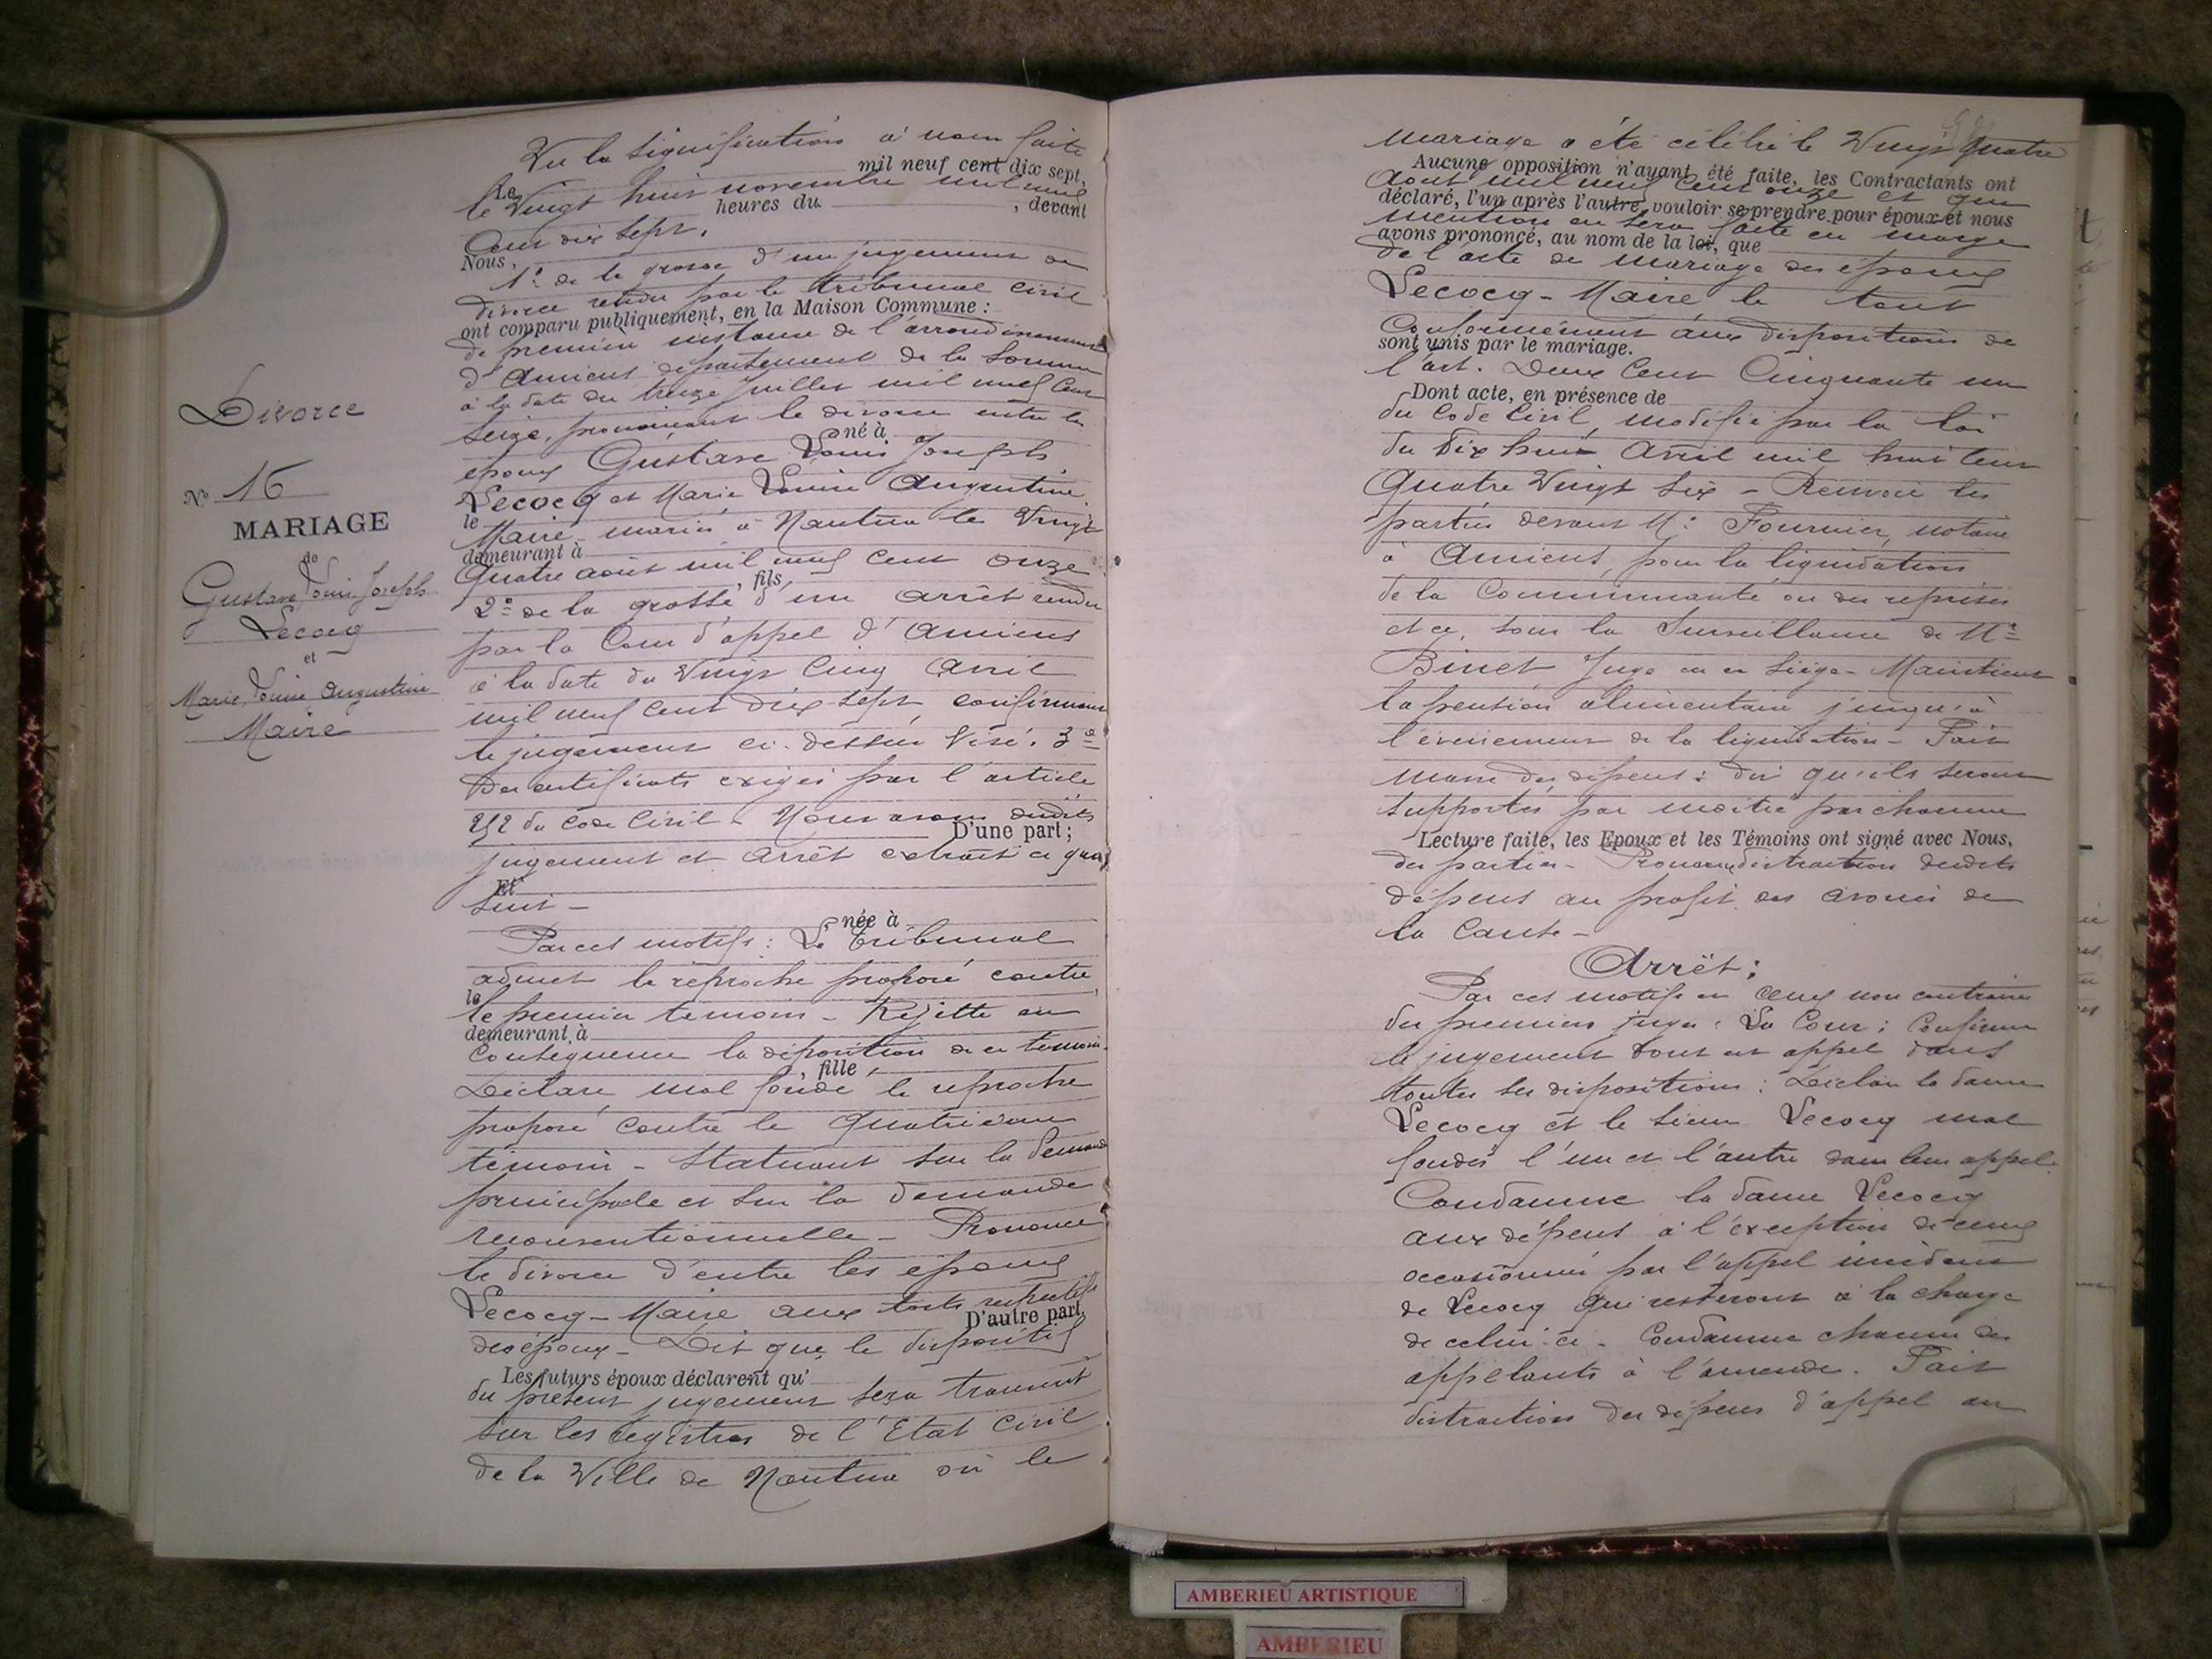 Divorce
N° 16
MARIAGE
de
Gustave Louis Joseph
Lecocq
et
Marie Louise Augustine
Maire
Vu la signification à nous faite
mil neuf cent dix sept,
Le
le Vingt huit novembre mil neuf
heures du , devant
Cent dix sept.
Nous,
1° de la grosse d'un jugement de
divorce rendu par le tribunal civil
ont comparu publiquement, en la Maison Commune :
de première instance de l'arrondissement
d'Amiens département de la Somme
à la date du treize Juillet mil neuf cent
seize, prononçant le divorce entre les
né à
époux Gustave Louis Joseph
Lecocq et Marie Louise Augustine
le
Maire, mariés à Nantua le Vingt
demeurant à
Quatre août mil neuf cent onze
, fils
2° de la grosse d'un arrêt rendu
par la Cour d'appel d'Amiens
à la date du Vingt Cinq Avril
mil neuf cent dix-sept confirmant
le jugement ci-dessus visé. 3°
Des certificats exigés par l'article
252 du Code Civil. Nous avons desdits
D'une part ;
jugement et arrêt extrait ce qui
Et
suit -
née à
Par ces motifs : Le tribunal
admet le reproche proposé contre
le
le premier témoin - Rejette en
demeurant à
Conséquence la déposition de ce témoin.
, fille
Déclare mal fondé le reproche
proposé contre le Quatrième
témoin - Statuant sur la demande
principale et sur la demande
reconventionnelle - Prononce
le divorce d'entre les époux
Lecocq-Maire aux torts respectifs
D'autre part,
des époux - Dit que le dispositif
Les futurs époux déclarent qu'
du présent jugement sera transcrit
sur les registres de l'Etat Civil
de la Ville de Nantua où le
mariage a été célébré le Vingt Quatre
Aucune opposition n'ayant été faite, les Contractants ont
Aout mil neuf Cent onze et que
déclaré, l'un après l'autre, vouloir se prendre pour époux et nous
mention en sera faite en marge
avons prononcé, au nom de la loi, que
de l'acte de mariage des époux
Lecocq-Maire le tout
Conformément aux dispositions de
sont unis par le mariage.
l'art. Deux Cent Cinquante un
Dont acte, en présence de
du Code Civil, modifié par la loi
du Dix huit Avril mil huit cent
Quatre Vingt Six - Renvoie les
parties devant Me Fournier, notaire
à Amiens, pour la liquidation
de la Communauté ou des reprises
et ce, sous la Surveillance de Mr
Binet Juge en ce Siège - Maintient
la pension alimentaire jusqu'à
l'évènement de la liquidation - Fait
masse des dépens : dit qu'ils seront
supportés par moitié par chacune
Lecture faite, les Epoux et les Témoins ont signé avec Nous,
des parties - Prononce distraction desdits
dépens au profit des avoués de
la Cause -
Arrêt :
Par ces motifs et ceux non contraires
des premiers juges : La Cour : Confirme
le jugement dont est appel dans
toutes ses dispositions : Déclare la dame
Lecocq et le sieur Lecocq mal
fondés l'un et l'autre dans leur appel.
Condamne la dame Lecocq
aux dépens à l'exception de ceux
occasionnés par l'appel incident
de Lecocq qui resteront à la charge
de celui-ci - Condamne chacun des
appelants à l'amende. Fait
distraction des dépens d'appel au
AMBERIEU ARTISTIQUE
AMBERIEU